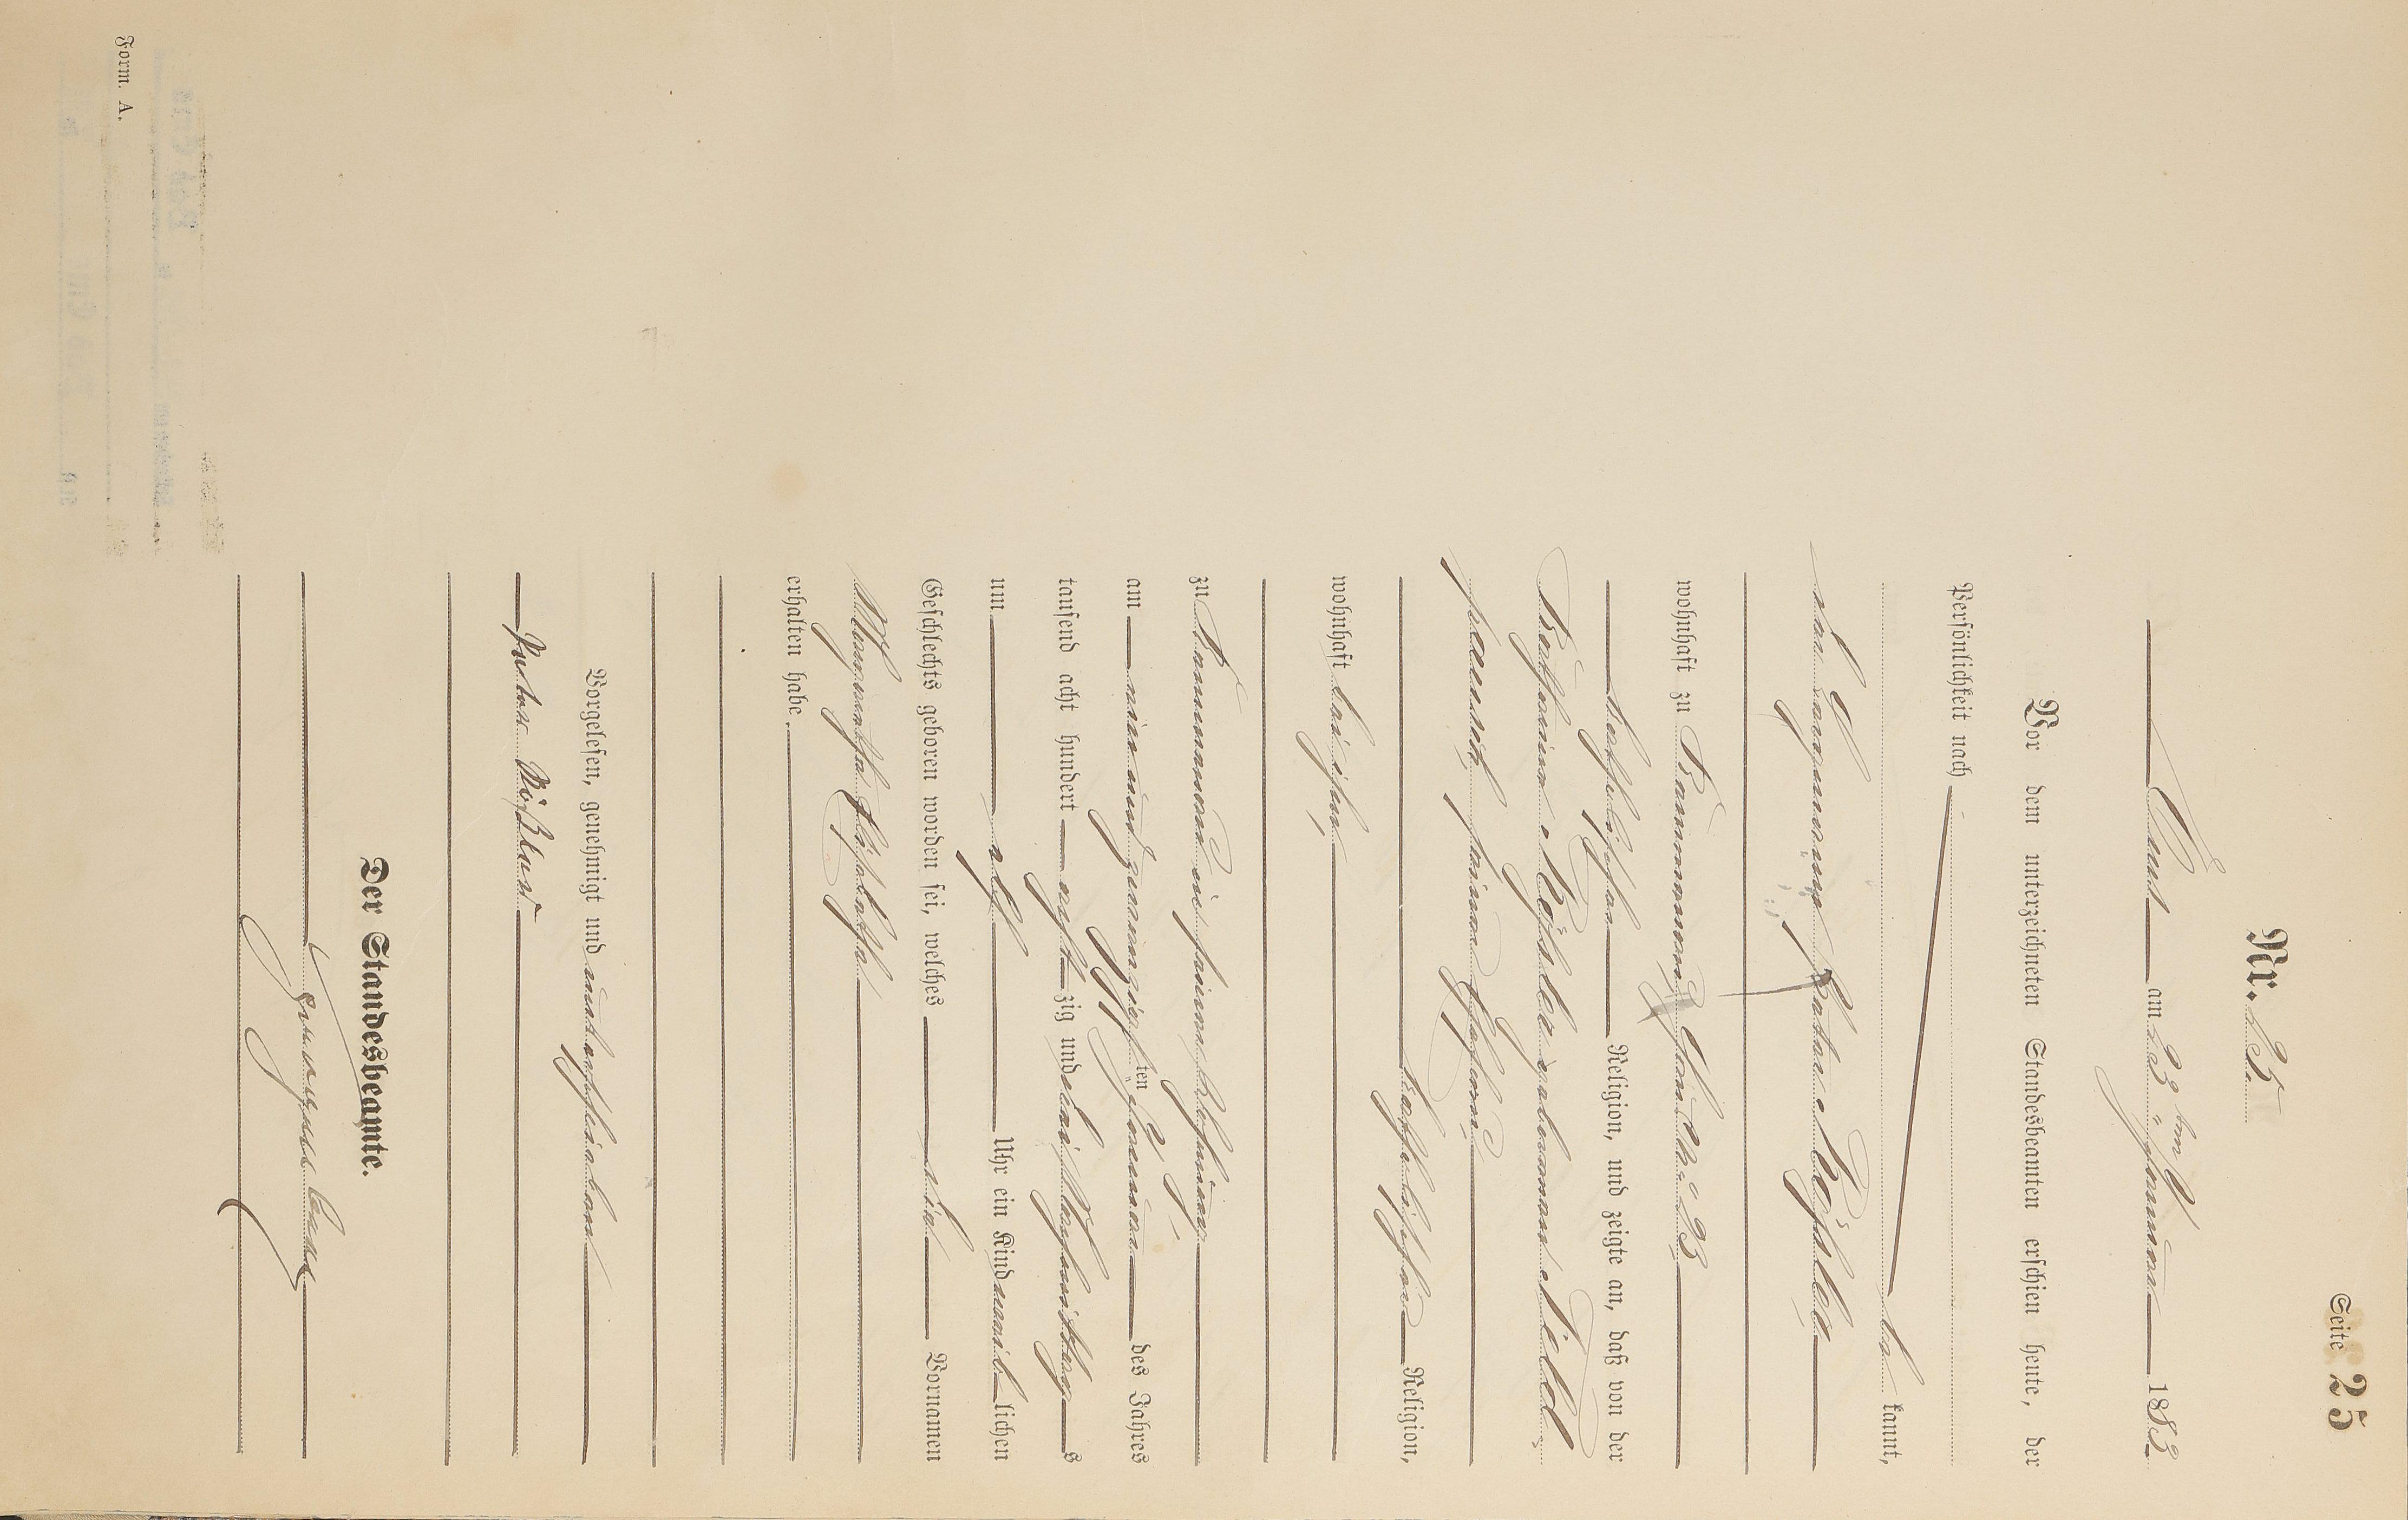 Seite 25
Nr. 25.
am 23ten Januar 1883.
Vor dem unterzeichneten Standesbeamten erschien heute, der
Persönlichkeit nach
be kannt,
der Tagner Peter Rößler
wohnhaft zu
katholischer Religion, und zeigte an, daß von der
Katharina Rößler geborenen
seiner Ehefrau
katholischer Religion,
wohnhaft bei ihm,
zu in seiner Behausung
am ein und zwanzigsten Januar des Jahres
tausend acht hundert achtzig und drei Nachmittags
um elf Uhr ein Kind weiblichen
Geschlechts geboren worden sei, welches die Vornamen
Margaretha Elisabetha
erhalten habe.
Vorgelesen, genehmigt und unterschrieben
Peter Rößler
Der Standesbeamte.
Form. A.